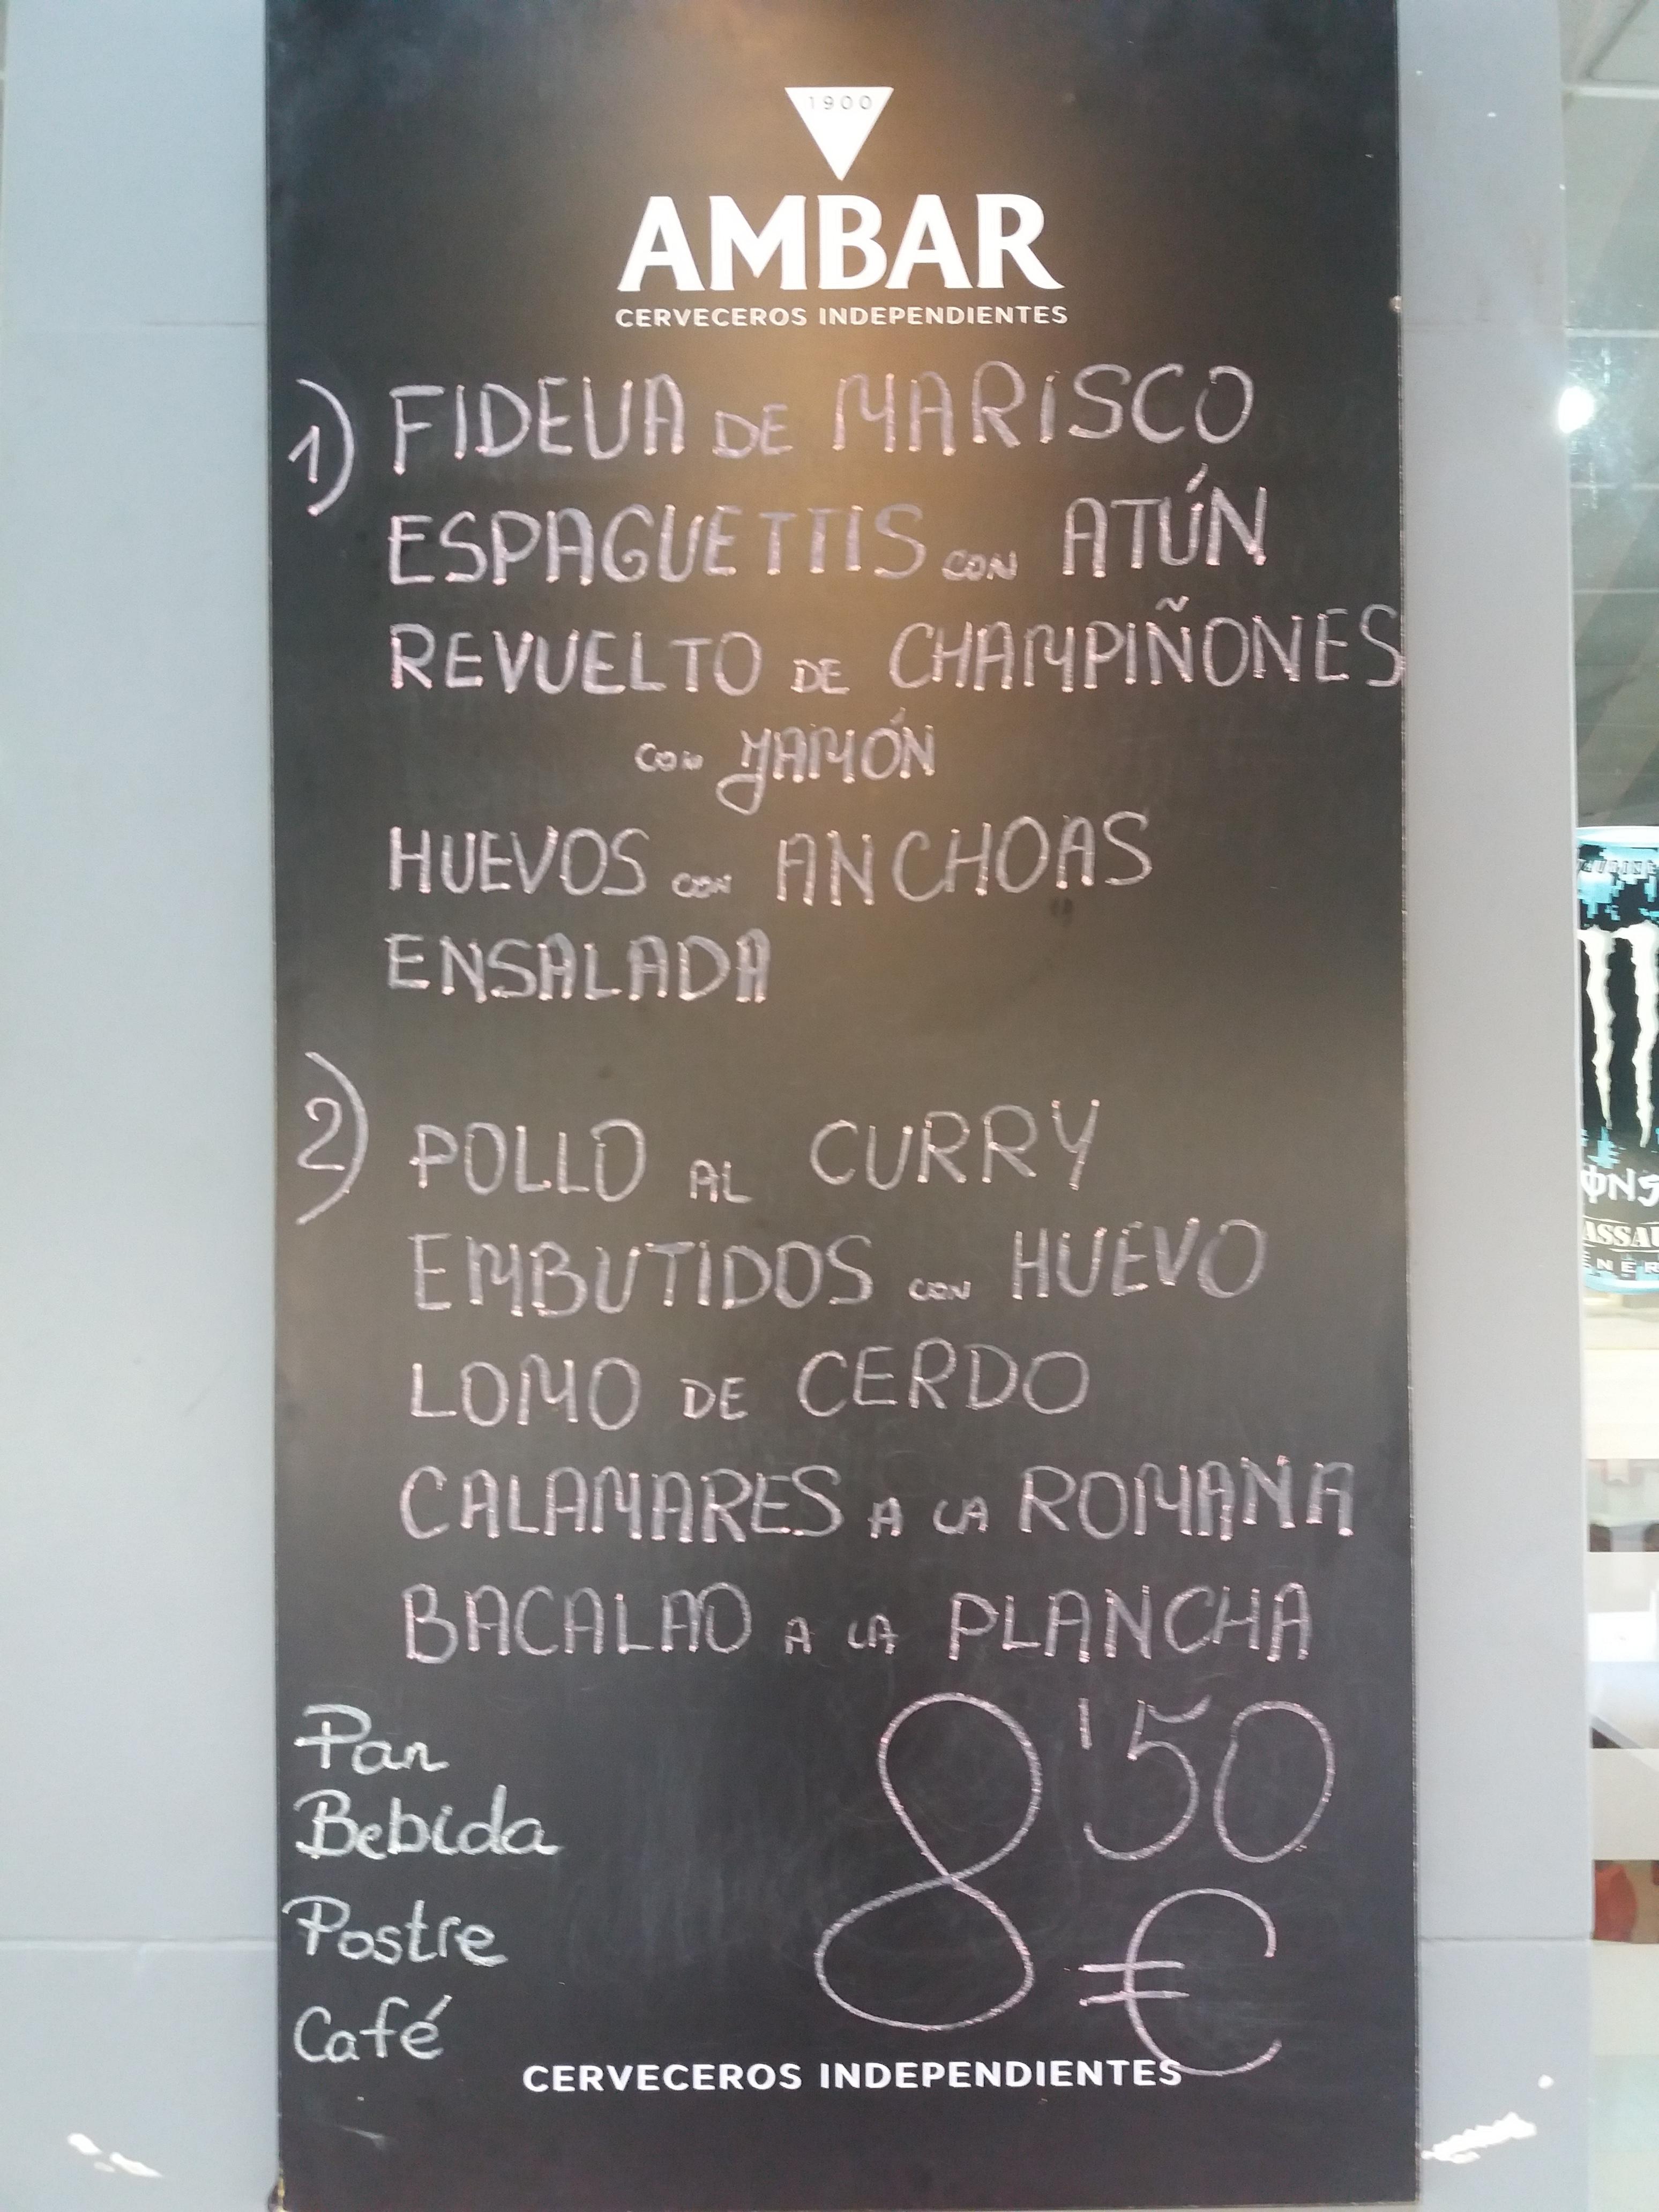 1900
AMBAR
CERVECEROS INDEPENDIENTES
1) FIDEUA DE MARISCO
ESPAGUETTIS CON ATÚN
REVUELTO DE CHAMPIÑONES
CON JAMÓN
HUEVOS CON ANCHOAS
ENSALADA
2) POLLO AL CURRY
EMBUTIDOS CON HUEVO
LOMO DE CERDO
CALAMARES A LA ROMANA
BACALAO A LA PLANCHA
Pan
Bebida
Postre
Café
8'50
€
CERVECEROS INDEPENDIENTES